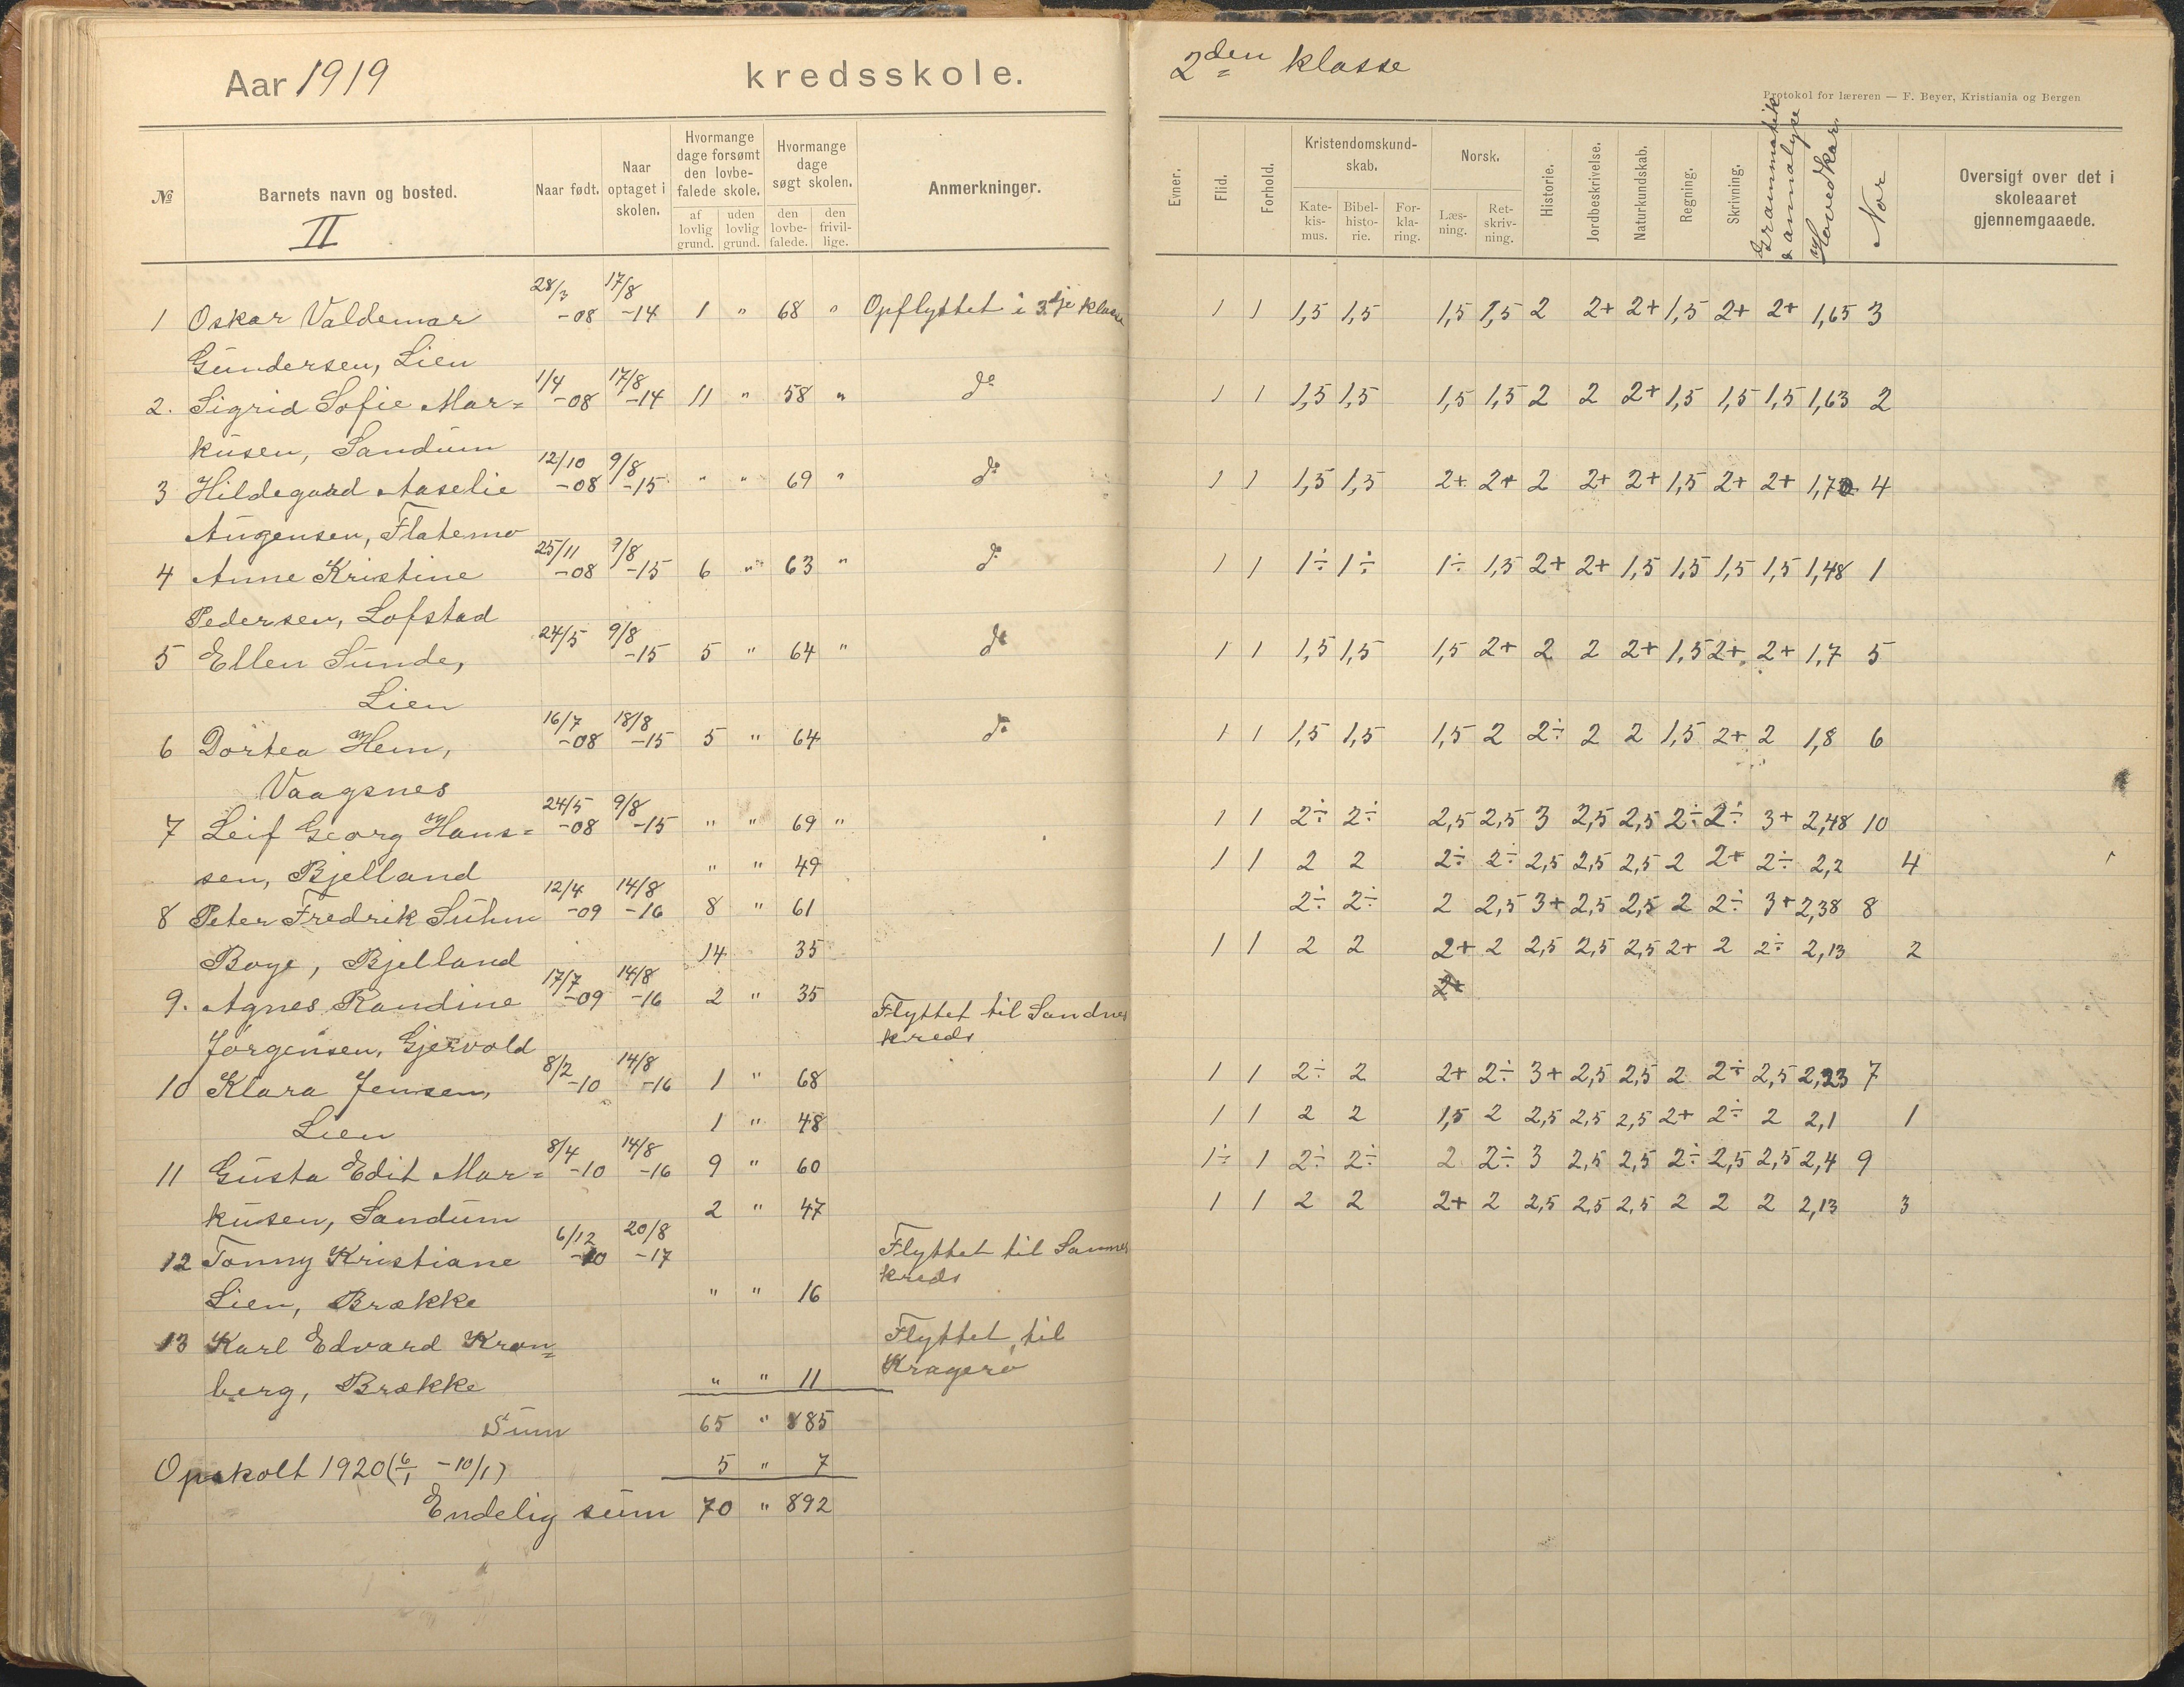 Aar 1919 kredsskole.
№ Barnets navn og bosted. Naar født. Naar optaget i skolen. Hvormange dage forsømt den lovbefalede skole. Hvormange dage søgt skolen. Anmerkninger.
af lovlig grund. uden lovlig grund. den lovbefalede. den frivillige.
II
28/3 17/8
1 Oskar Valdemar -08 -14 1 " 68 " Opflyttet i 3dje klasse
Gundersen, Lien
1/4 17/8
2. Sigrid Sofie Mar= -08 -14 11 " 58 " do
kusen, Sandum
12/10 9/8
3 Hildegaard Aaselie -08 -15 " " 69 " do
Augensen, Flatemo
25/11 9/8
4 Anne Kristine -08 -15 6 " 63 " do
Pedersen, Lofstad
24/5 9/8
5 Ellen Sunde, -15 5 " 64 " do
Lien
16/7 18/8
6 Dortea Hem, -08 -15 5 " 64 do
Vaagsnes
24/5 9/8
7 Leif Georg Hans= -08 -15 " " 69 "
sen, Bjelland " " 49
12/4 14/8
8 Peter Fredrik Suhm -09 -16 8 " 61
Boye, Bjelland 14 35
17/7 14/8
9. Agnes Randine -09 -16 2 " 35 Flyttet til Sandnes
Jørgensen, Gjervold kreds
8/2 14/8
10 Klara Jensen, -10 -16 1 " 68
Lien 1 " 48
8/4 14/8
11 Gusta Edit Mar= -10 -16 9 " 60
kusen, Sandum 2 " 47
6/12 20/8
12 Tonny Kristiane -10 -17 Flyttet til Sannes
Lien, Brække " " 16 kreds
13 Karl Edvard Kron= Flyttet til
berg, Brække " " 11 Kragerø
Sum 65 " 885
Opskolt 1920 (6/1 -10/1) 5 " 7
Endelig sum 70 " 892
2den klasse
Protokol for læreren — F. Beyer, Kristiania og Bergen
Evner. Flid. Forhold. Kristendomskundskab. Norsk. Historie. Jordbeskrivelse. Naturkundskab. Regning. Skrivning. Grammatik & annalyse Hovedkar. Nor Oversigt over det i skoleaaret gjennemgaaede.
Katekismus. Bibelhistorie. Forklaring. Læsning. Retskrivning.
1 1 1,5 1,5 1,5 1,5 2 2+ 2+ 1,5 2+ 2+ 1,65 3
1 1 1,5 1,5 1,5 1,5 2 2 2+ 1,5 1,5 1,5 1,63 2
1 1 1,5 1,5 2+ 2+ 2 2+ 2+ 1,5 2+ 2+ 1,70 4
1 1 1÷ 1÷ 1÷ 1,5 2+ 2+ 1,5 1,5 1,5 1,5 1,48 1
1 1 1,5 1,5 1,5 2+ 2 2 2+ 1,5 2+ 2+ 1,7 5
1 1 1,5 1,5 1,5 2 2÷ 2 2 1,5 2+ 2 1,8 6
1 1 2÷ 2÷ 2,5 2,5 3 2,5 2,5 2÷ 2÷ 3+ 2,48 10
1 1 2 2 2÷ 2÷ 2,5 2,5 2,5 2 2+ 2÷ 2,2 4
2÷ 2÷ 2 2,5 3+ 2,5 2,5 2 2÷ 3+ 2,38 8
1 1 2 2 2+ 2 2,5 2,5 2,5 2+ 2 2÷ 2,13 2
2+
1 1 2÷ 2 2+ 2÷ 3+ 2,5 2,5 2 2÷ 2,5 2,23 7
1 1 2 2 1,5 2 2,5 2,5 2,5 2+ 2÷ 2 2,1 1
1÷ 1 2÷ 2÷ 2 2÷ 3 2,5 2,5 2÷ 2,5 2,5 2,4 9
1 1 2 2 2+ 2 2,5 2,5 2,5 2 2 2 2,13 3